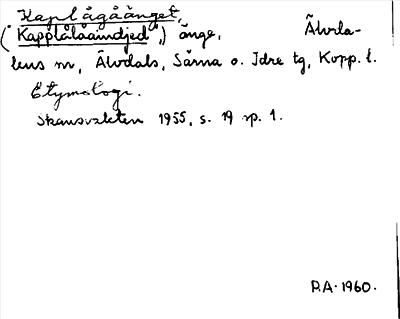 Kaplågåänget,
("Kapplålåamdjed",) änge, Älvda-
lens m, Älvdals, Särna o. Idre tg, Kopp. l.
Etymologi.
Skansvakten 1955, s. 19 sp. 1.
P.A. 1960.